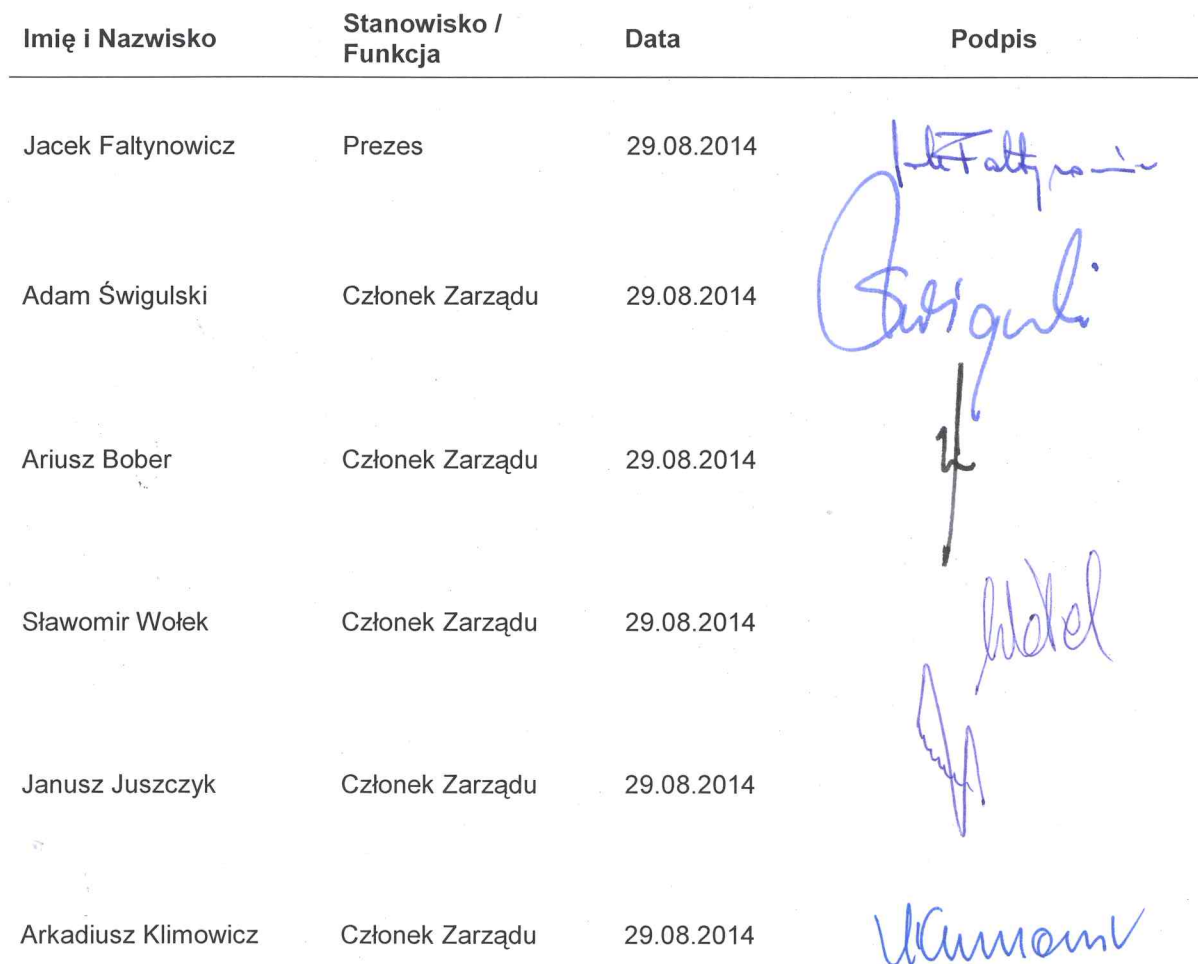 Imię i Nazwisko Stanowisko / Funkcja Data Podpis
Jacek Faltynowicz Prezes 29.08.2014 Faltynowicz
Adam Świgulski Członek Zarządu 29.08.2014
Ariusz Bober Członek Zarządu 29.08.2014
Sławomir Wołek Członek Zarządu 29.08.2014 Wołek
Janusz Juszczyk Członek Zarządu 29.08.2014
Arkadiusz Klimowicz Członek Zarządu 29.08.2014